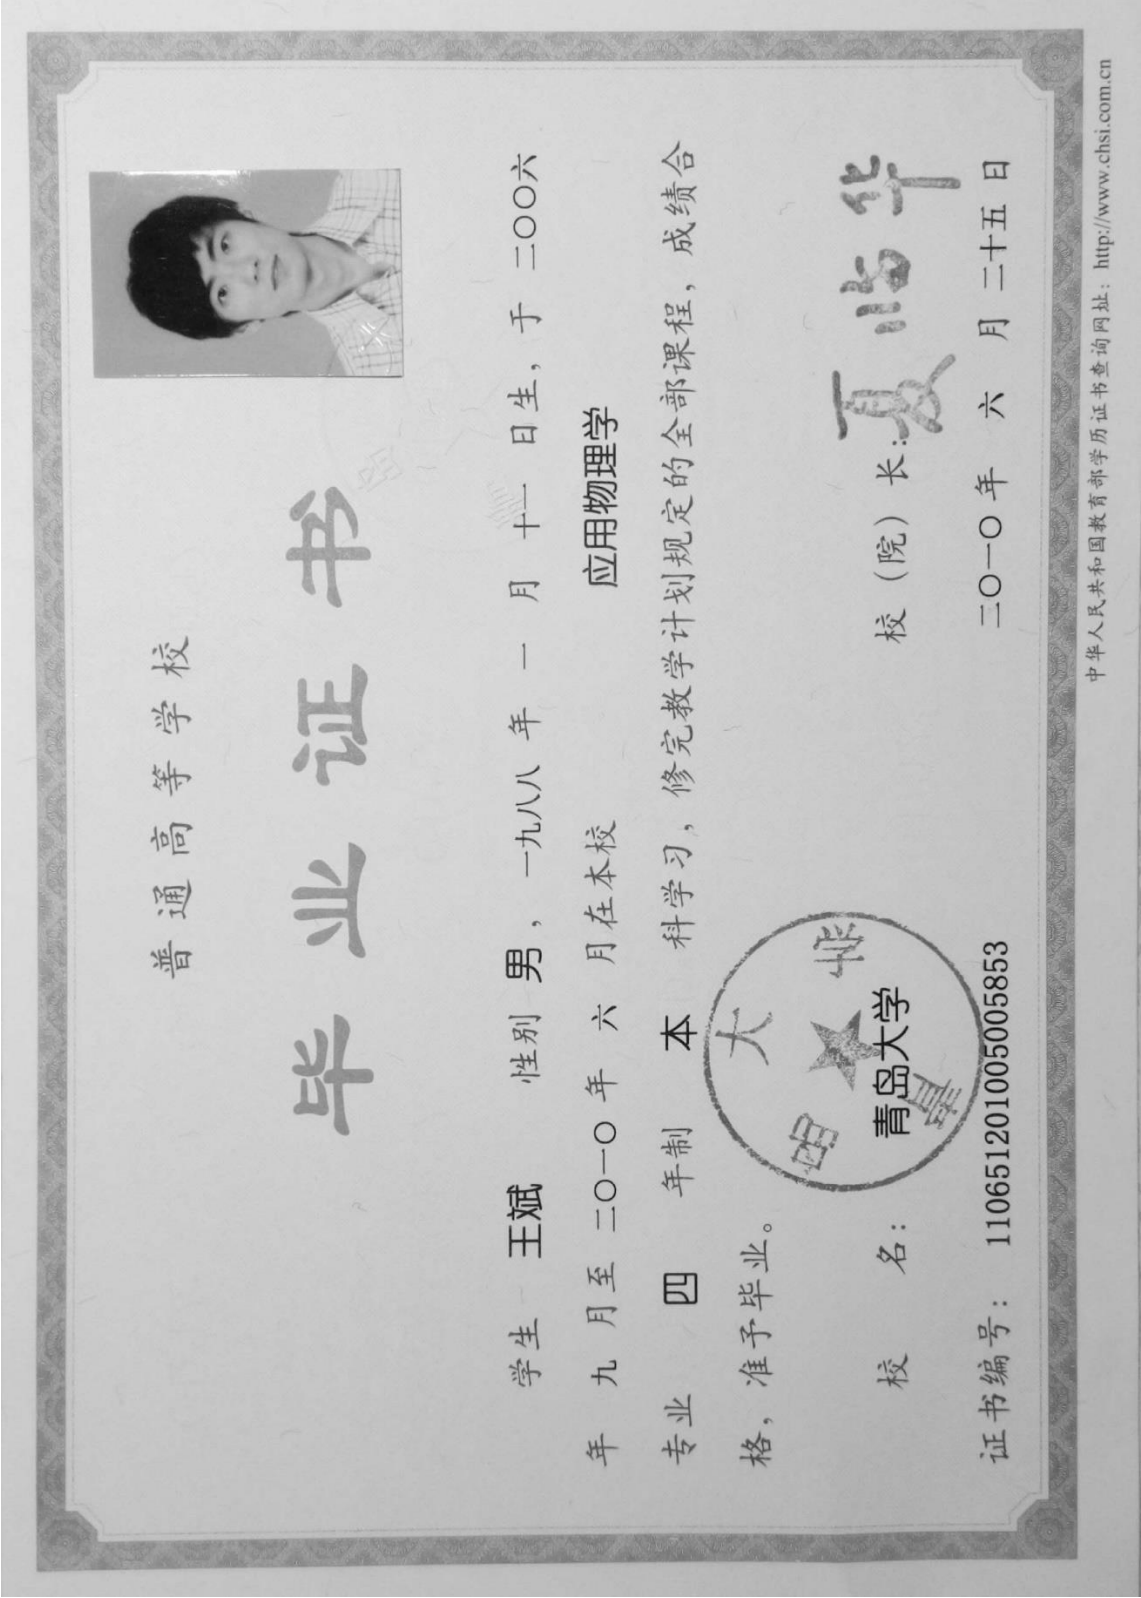 普通高等学校
毕业证书
学生 王斌 性别 男，一九八八 年 一 月 十一 日生，于 二〇〇六
年 九 月至 二〇一〇 年 六 月在本校 应用物理学
专业 四 年制 本 科学习，修完教学计划规定的全部课程，成绩合
格，准予毕业。
校 名： 青岛大学 校（院）长： 夏临华
青岛大学
证书编号： 110651201005005853 二〇一〇 年 六 月 二十五 日
中华人民共和国教育部学历证书查询网址：http://www.chsi.com.cn